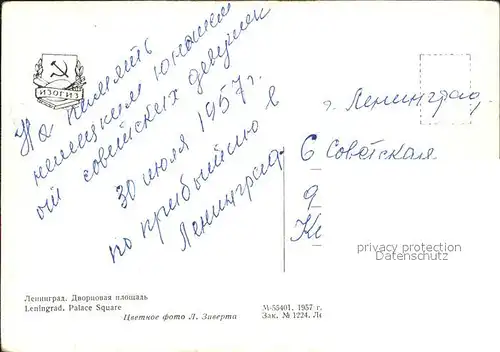 ИЗОГИЗ
На память
немецким юношам
от советских девушек
30 июля 1957 г.
по прибытию в
Ленинград.
г. Ленинград,
6 Советская
9
privacy protection
www.ansichtskarten-center.de
Ленинград. Дворцовая площадь
Leningrad. Palace Square
Цветное фото Л. Зиверта
М-55401. 1957 г.
Зак. № 1224. Ле